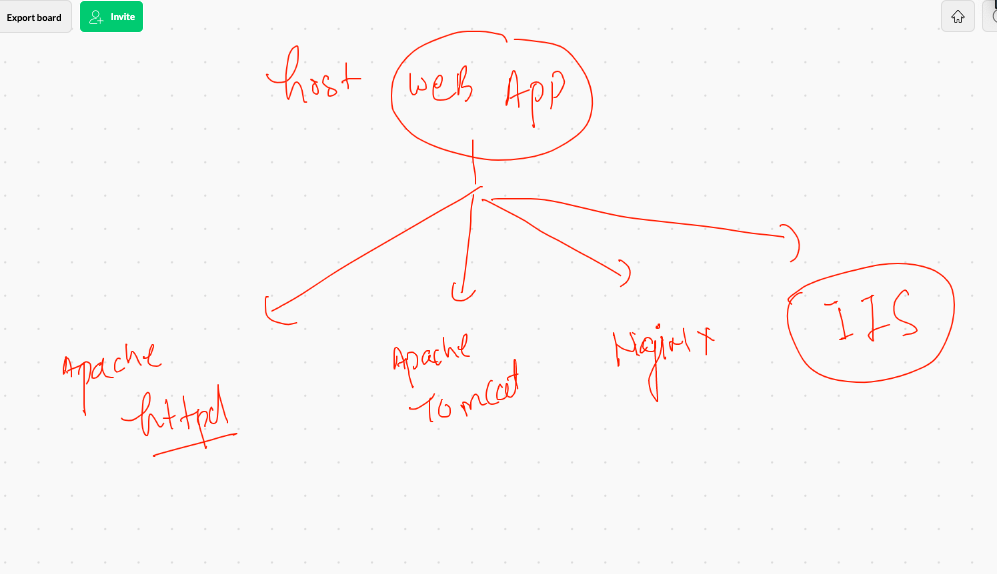 Export board
Invite
host
WEB APP
Apache
httpd
Apache
Tomcat
Nginx
IIS